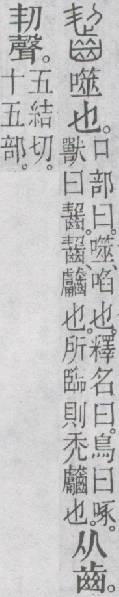 齧噬也。
口部曰。噬、啗也。釋名曰。鳥曰啄。
獸曰齧。齧、齾也。所臨則禿齾也。
从齒。
㓞聲。
五結切。
十五部。